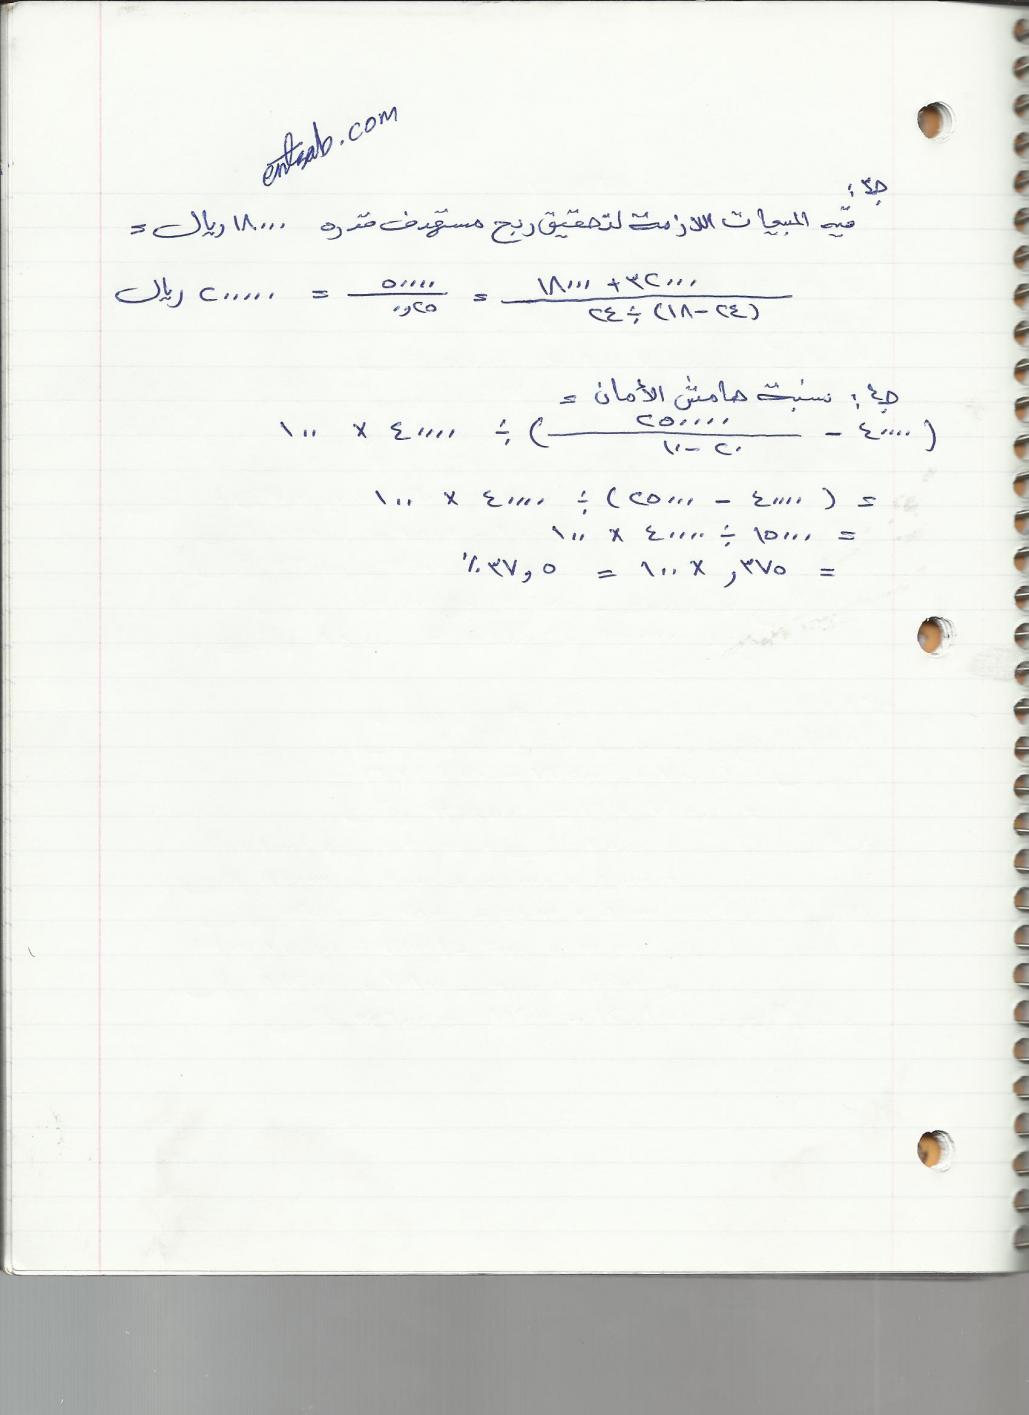 entsab.com
ج٣:
قيمه المبيعات اللازمة لتحقيق ربح مستهدف قدره ١٨٠٠٠ ريال =
١٨٠٠٠ + ٣٢٠٠٠ / (٢٤-١٨) ÷ ٢٤ = ٥٠٠٠٠ / ٠,٢٥ = ٢٠٠٠٠٠ ريال
ج٤: نسبة هامش الأمان =
(٤٠٠٠٠ - ٢٥٠٠٠٠ / ٢٠-١٠) ÷ ٤٠٠٠٠ × ١٠٠
= (٤٠٠٠٠ - ٢٥٠٠٠) ÷ ٤٠٠٠٠ × ١٠٠
= ١٥٠٠٠ ÷ ٤٠٠٠٠ × ١٠٠
= ,٣٧٥ × ١٠٠ = ٣٧,٥٪